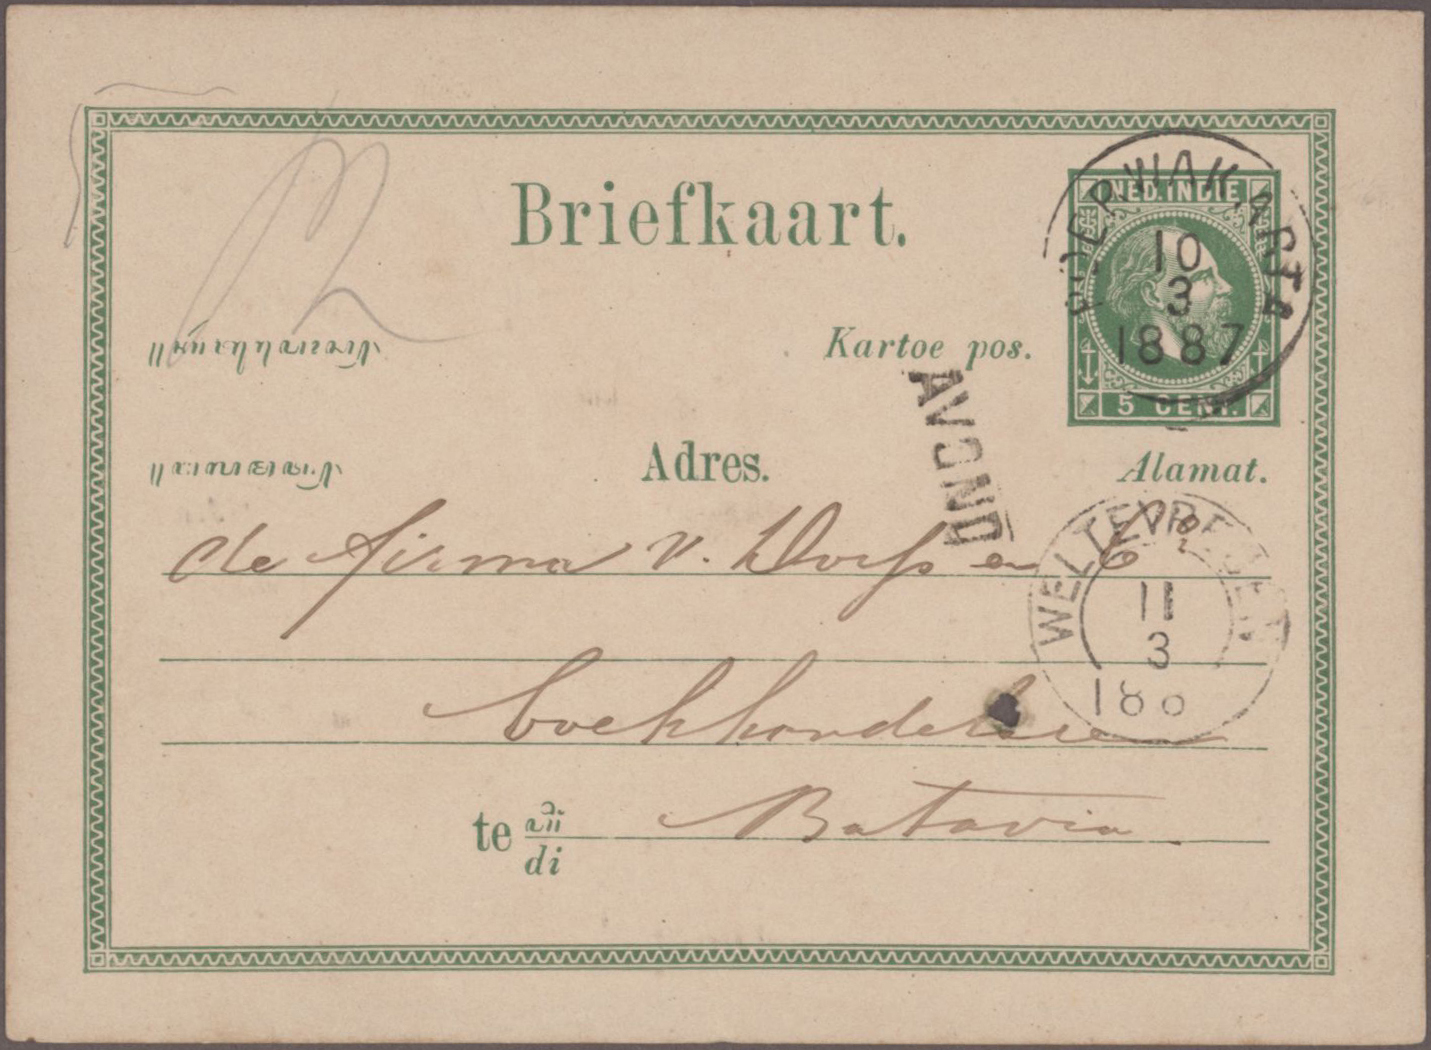 Briefkaart.
NED. INDIE
POERWAKARTA
10
3
1887
5 CENT.
Kartoe pos.
AVOND
Adres.
Alamat.
WELTEVREDEN
11
3
188
de Firma v. Dorp en Co
boekhandelaren
te di Batavia